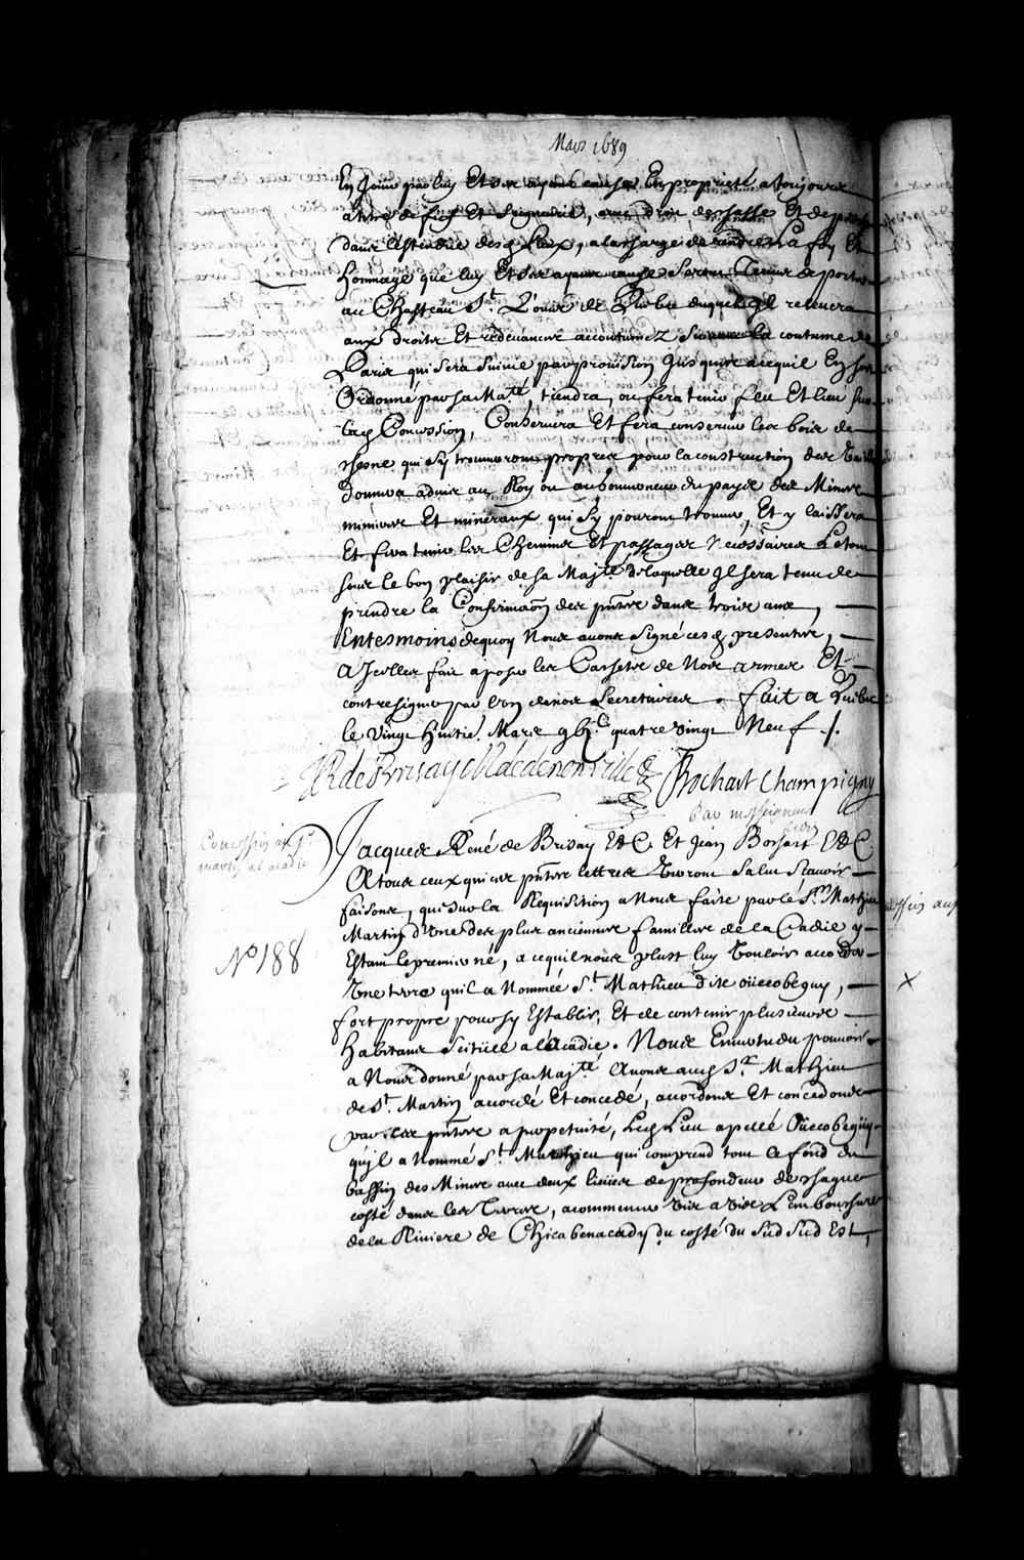 Mars 1689
En Jouir par luy Et ses ayans cause En propriete a toujours
a titre de fief Et Seigneurie, avec droit de chasse Et de pesche
dans l'estendue desd. Lieux, a la charge de rendre La foy Et
hommage que luy Et ses ayans cause seront Tenus de porter
au Chasteau St. Louis de Quebec duquel Il relevera
aux droits Et redevances accoutumez suivant la coutume de
Paris qui sera suivie par provision Jusqu'a ce quil En soit
Ordonné par sa Maté, tiendra, ou fera tenir feu Et lieu sur
lad. Concession, Conservera Et fera conserver les bois de
chesne qui s'y trouveront propres pour la construction des Vaisseaux
donnera advis au Roy ou au Gouverneur du payis des Mines
minieres Et mineraux qui s'y pouront trouver, Et y laissera
Et fera tenir les Chemins Et passages Necessaires Le tout
sous le bon plaisir de sa Majté de laquelle Il sera tenu de
prendre la Confirmaõn des pñtes dans trois ans,
En tesmoins de quoy Nous avons signé cesd. presentes,
a Jcelles fait aposer les Cachets de Nos armes Et
contresigner par l'un de nos Secretaires. fait a Quebec
le Vingt huitie. Mars gbic quatre vingt Neuf ./.
JR de Brisay M de denonville
Bochart Champigny
Par messeigneurs
Concession au Sr.
martin a l acadie
Jacques René de Brisay E&C. Et Jean Bochart E&C.
A tous ceux qui ces pñtes lettres Verront Salut Scavoir
faisons, que sur la Requisition a Nous faite par le Sr. Mathieu
Martin d'Une des plus anciennes familles de la Cadie y
Estant le premier né, a ce quil nous plust luy Vouloir accorder
Une terre quil a Nommée St. Mathieu dite oüecobeguy,
fort propre pour s'y Establir, Et de contenir plusieurs
habitans Scituée a l'acadie. Nous En vertu du pouvoir
a Nous donné par sa Majté Avons aud. Sr. Mathieu
de St. Martin accordé Et concedé, accordons Et concedons
par ces pñtes a perpetuité, Led. Lieu apellé Oüecobeguy
qu'jl a Nommé St. Mathieu qui comprend tout le fond du
bassin des Mines avec deux lieües de profondeur de chaque
costé dans les Terres, a commencer Vis a Vis L'embouchure
de la Riviere de Chicabenacady du costé du Sud Sud Est,
No 188